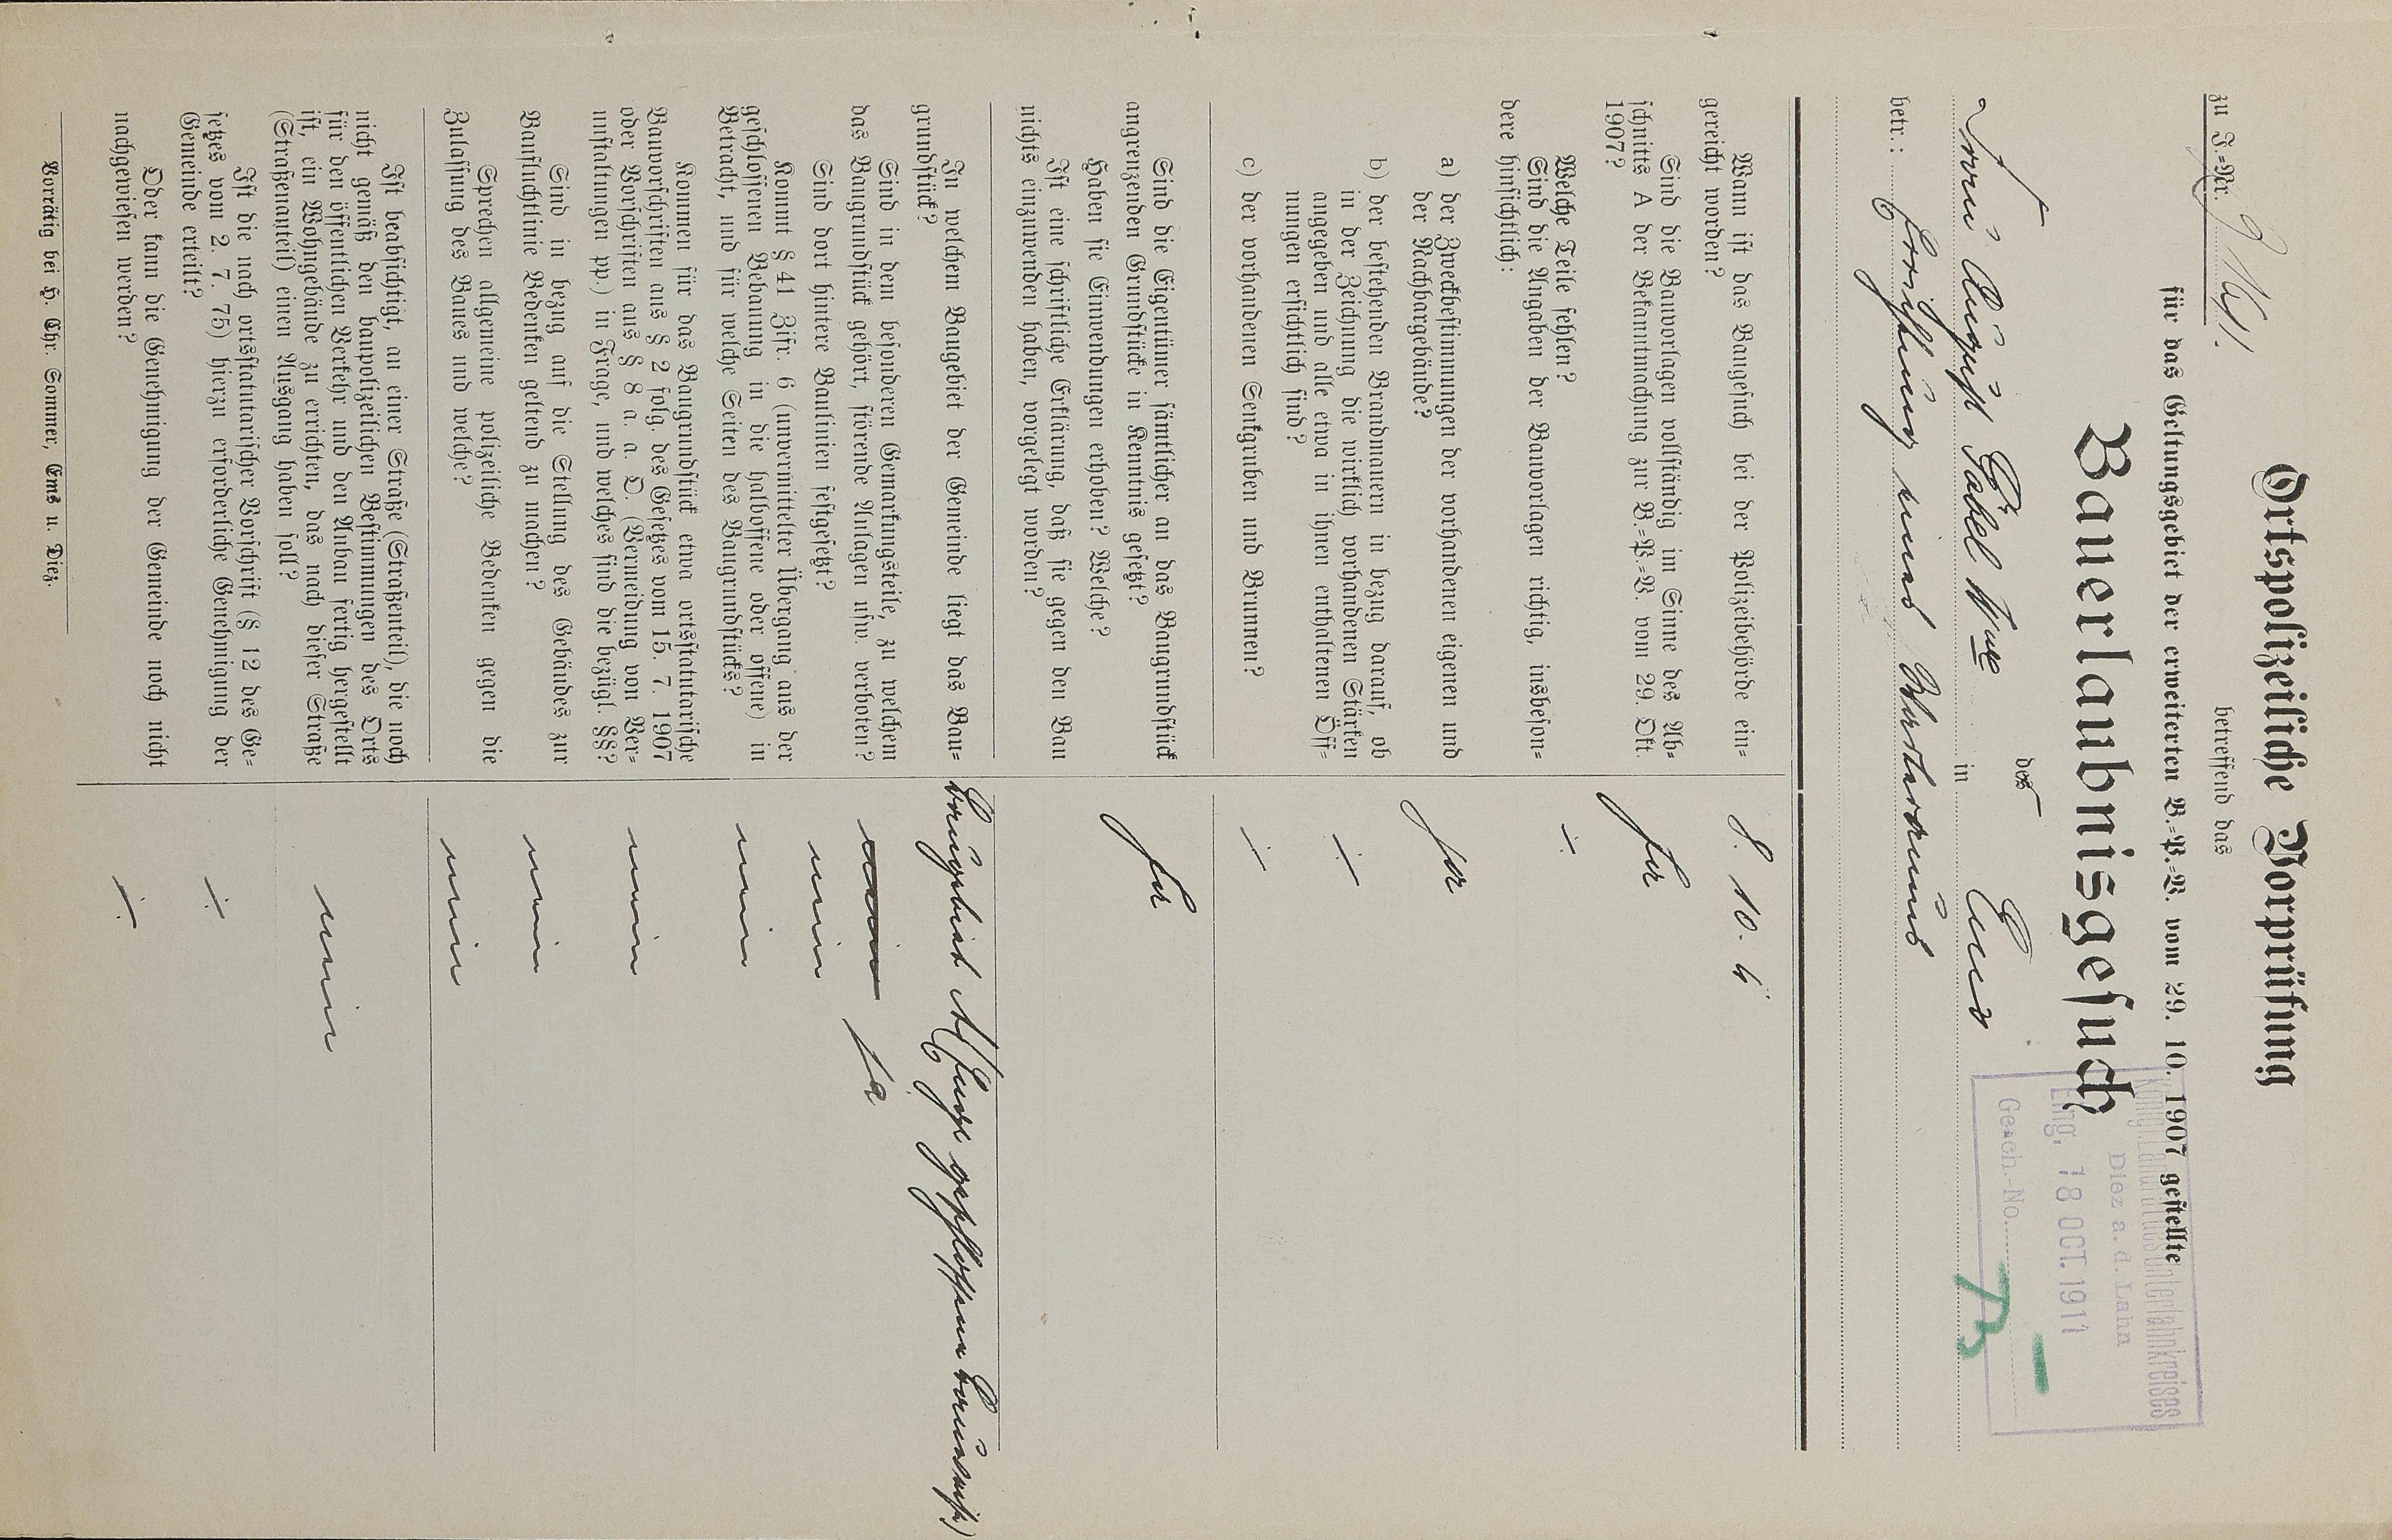 zu J.=Nr.
Ortspolizeiliche Vorprüfung
betreffend das
für das Geltungsgebiet der erweiterten B.=P.=V. vom 29. 10. 1907 gestellte
Bauerlaubnisgesuch
Königl. Landrat des Unterlahnkreises
Diez a. d. Lahn
Eing. 18 OCT. 1911
Gesch.-No.
des
Frau August Gäbel Wwe in Ems
betr.: Errichtung eines
Wann ist das Baugesuch bei der Polizeibehörde ein=
gereicht worden?
8. 10. 4
Sind die Bauvorlagen vollständig im Sinne des Ab=
schnitts A der Bekanntmachung zur B.=P.=V. vom 29. Okt.
1907?
Ja
Welche Teile fehlen?
÷
Sind die Angaben der Bauvorlagen richtig, insbeson=
dere hinsichtlich:
a) der Zweckbestimmungen der vorhandenen eigenen und
der Nachbargebäude?
ja
b) der bestehenden Brandmauern in bezug darauf, ob
in der Zeichnung die wirklich vorhandenen Stärken
angegeben und alle etwa in ihnen enthaltenen Öff=
nungen ersichtlich sind?
÷
c) der vorhandenen Senkgruben und Brunnen?
÷
Sind die Eigentümer sämtlicher an das Baugrundstück
angrenzenden Grundstücke in Kenntnis gesetzt?
Ja
Haben sie Einwendungen erhoben? Welche?
Ist eine schriftliche Erklärung, daß sie gegen den Bau
nichts einzuwenden haben, vorgelegt worden?
In welchem Baugebiet der Gemeinde liegt das Bau=
grundstück?
Baugebiet A (Enge geschlossene Bauweise)
Sind in dem besonderen Gemarkungsteile, zu welchem
das Baugrundstück gehört, störende Anlagen usw. verboten?
nein ja
Sind dort hintere Baulinien festgesetzt?
nein
Kommt § 41 Zifr. 6 (unvermittelter Übergang aus der
geschlossenen Bebauung in die halboffene oder offene) in
Betracht, und für welche Seiten des Baugrundstücks?
nein
Kommen für das Baugrundstück etwa ortsstatutarische
Bauvorschriften aus § 2 folg. des Gesetzes vom 15. 7. 1907
oder Vorschriften aus § 8 a. a. O. (Vermeidung von Ver=
unstaltungen pp.) in Frage, und welches sind die bezügl. §§?
nein
Sind in bezug auf die Stellung des Gebäudes zur
Baufluchtlinie Bedenken geltend zu machen?
nein
Sprechen allgemeine polizeiliche Bedenken gegen die
Zulassung des Baues und welche?
nein
Ist beabsichtigt, an einer Straße (Straßenteil), die noch
nicht gemäß den baupolizeilichen Bestimmungen des Orts
für den öffentlichen Verkehr und den Anbau fertig hergestellt
ist, ein Wohngebäude zu errichten, das nach dieser Straße
(Straßenanteil) einen Ausgang haben soll?
nein
Ist die nach ortsstatutarischer Vorschrift (§ 12 des Ge=
setzes vom 2. 7. 75) hierzu erforderliche Genehmigung der
Gemeinde erteilt?
÷
Oder kann die Genehmigung der Gemeinde noch nicht
nachgewiesen werden?
÷
Vorrätig bei H. Chr. Sommer, Ems u. Diez.